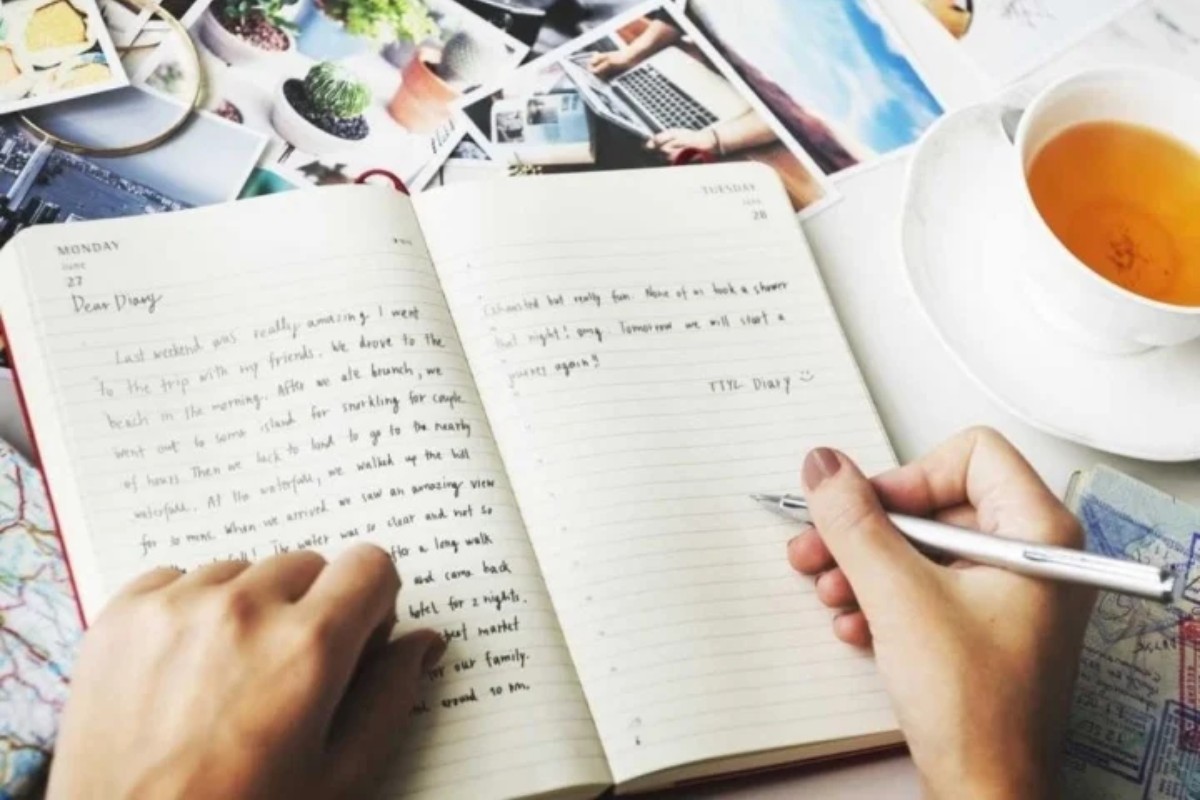 MONDAY
June
27
Dear Diary
Last weekend was really amazing I went
to the trip with my friends. We drove to the
beach in the morning. After we ate brunch, we
went out to some island for snorkling for couple
of hours. Then we back to land to go to the nearby
waterfall. At the waterfall, we walked up the hill
for 30 mins. When we arrived we saw an amazing view
The water was so clear and not so
after a long walk
and came back
hotel for 2 nights.
market
for our family.
around 10 pm.
TUESDAY
28
Exhausted but really fun. None of us took a shower
that night! omg. Tomorrow we will start a
journey again!
TTYL Diary